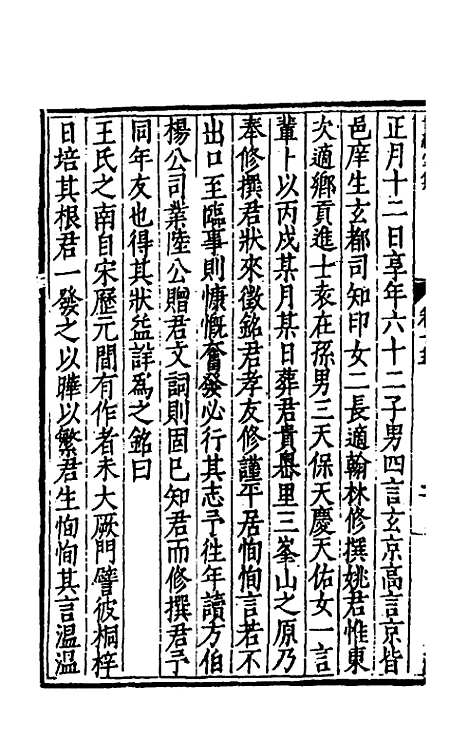 正月十二日享年六十二子男四言玄京高言京皆
邑庠生玄都司知印女二長適翰林修撰姚君惟東
次適鄉貢進士袁在孫男三天保天慶天佑女一言
軰卜以丙戌某月某日葬君貴愚里三峯山之原乃
奉修撰君狀來徵銘君孝友修謹平居恂恂言若不
出口至臨事則慷慨奮發必行其志予徃年讀方伯
楊公司業陸公贈君文詞則固已知君而修撰君予
同年友也得其狀益詳為之銘曰
王氏之南自宋歷元間有作者未大厥門譬彼桐梓
日培其根君一發之以曄以繁君生恂恂其言温温